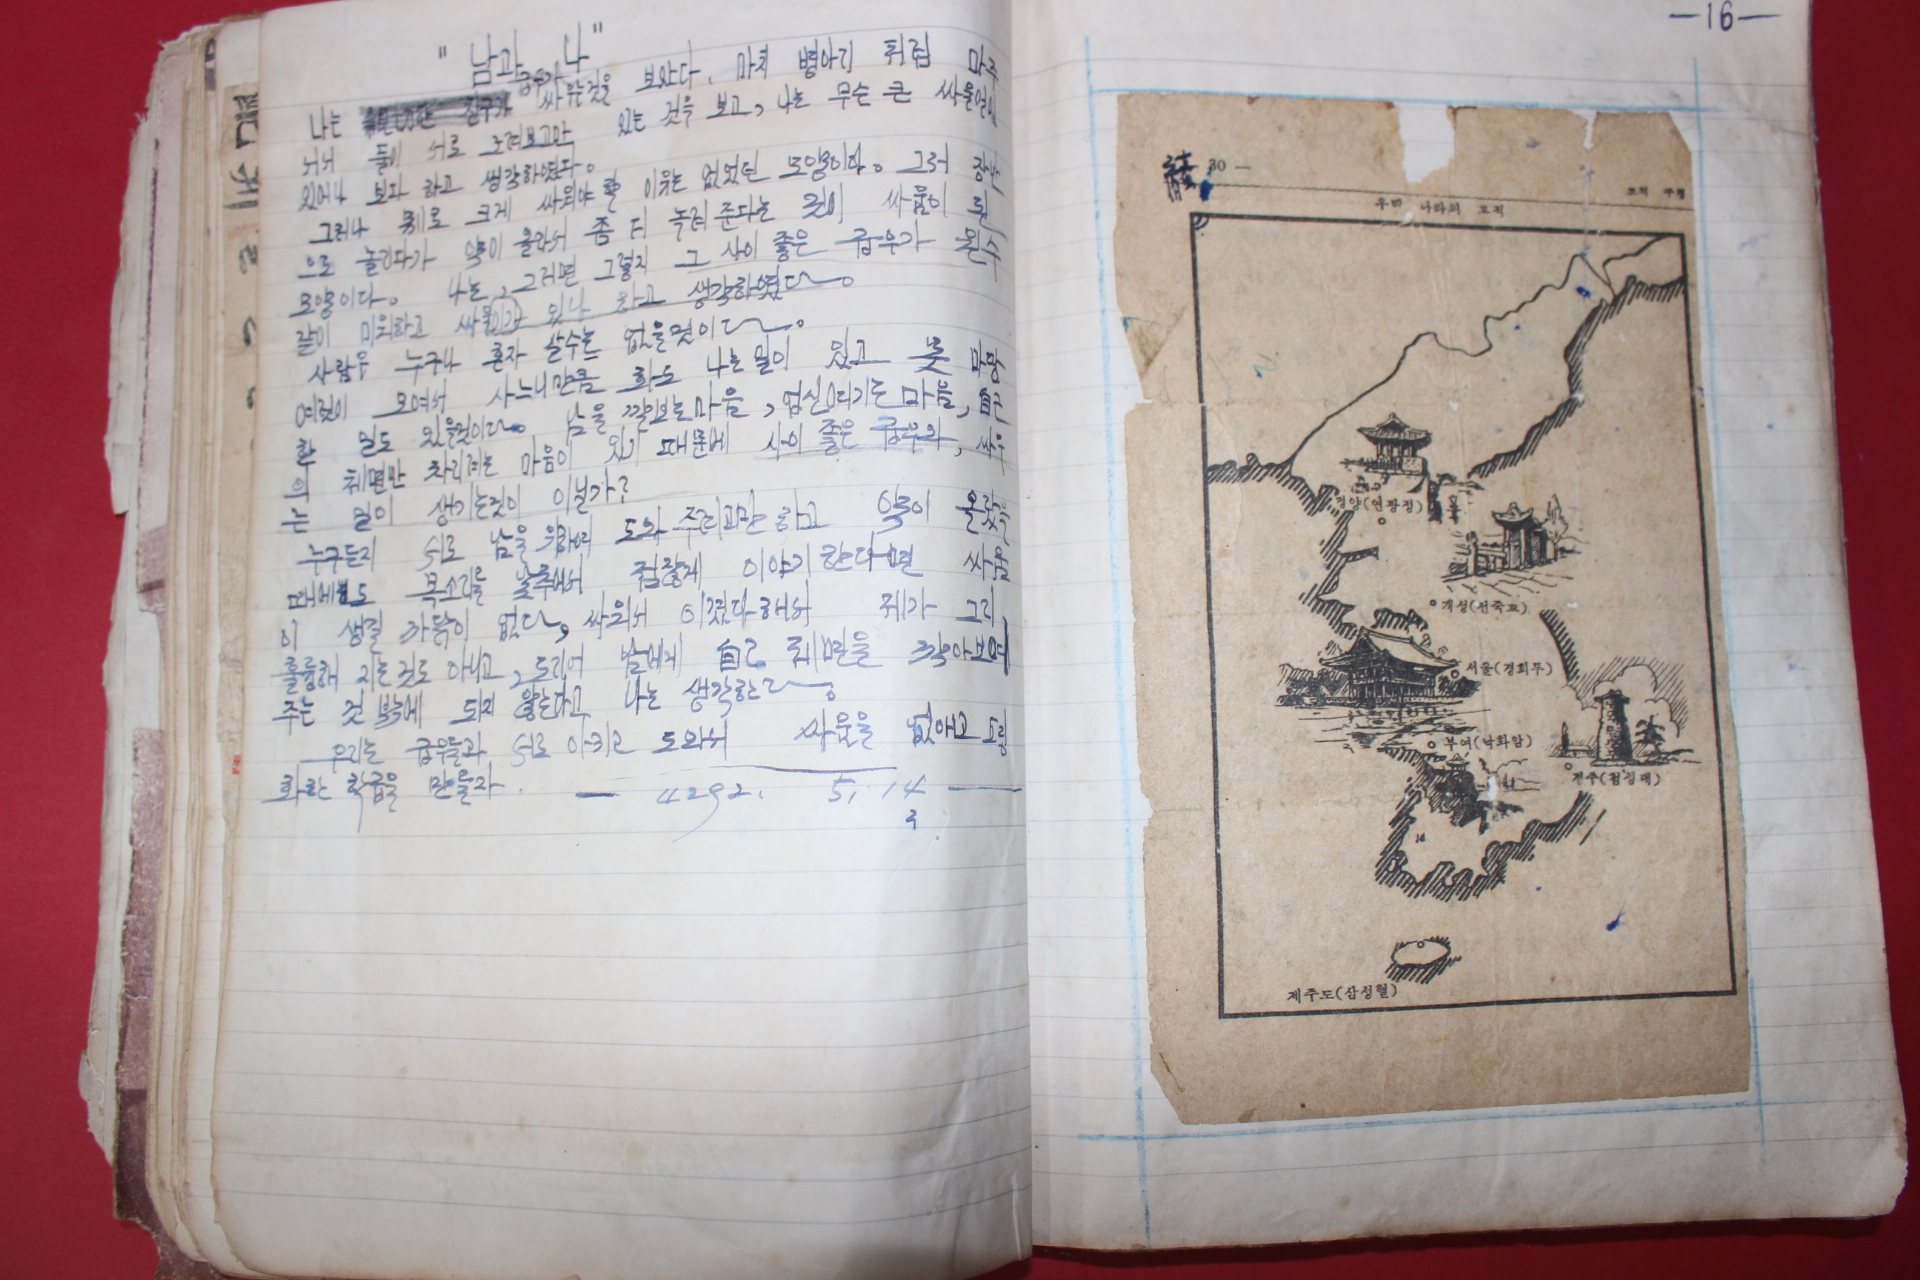 " 남과 나 "
나는 급우가 싸우는것을 보았다. 마치 병아리 처럼 마주
서서 둘이 서로 노려보고만 있는 것을 보고, 나는 무슨 큰 싸울일이
있어나 보다 하고 생각하였다.
그러나 크게 싸워야 할 이유는 없었던 모양이다. 그저 장난
으로 놀리다가 약이 올라서 좀 더 놀려 준다는 것이 싸움이 된
모양이다. 나는, 그러면 그렇지 그 사이 좋은 급우가 원수
같이 미워하고 싸울 수가 있나 하고 생각하였다.
사람은 누구나 혼자 살수는 없을것이다.
여럿이 모여서 사느니만큼 화도 나는일이 있고 못 마땅
한 일도 있을것이다. 남을 깔보는마음, 업신여기는마음, 自己
의 체면만 차리려는 마음이 있기 때문에 사이 좋은 급우와, 싸우
는 일이 생기는것이 아닐가?
누구든지 서로 남을 위하여 도와 주려고만 하고 약이 올랐을
때에도 목소리를 낮추어서 점잖게 이야기 한다면 싸울
이 생길 까닭이 없다, 싸워서 이겼다해서 제가 그리
훌륭해 지는것도 아니고, 도리어 남에게 自己 체면을 깎아보여
주는 것 밖에 되지 않는다고 나는 생각한다.
우리는 급우들과 서로 아끼고 도와서 싸움을 없애고 명랑
화한 학급을 만들자. — 4292. 5. 14 —
—16—
30 —
우리 나라의 고적
평양(연광정)
개성(선죽교)
서울(경회루)
부여(낙화암)
경주(첨성대)
제주도(삼성혈)